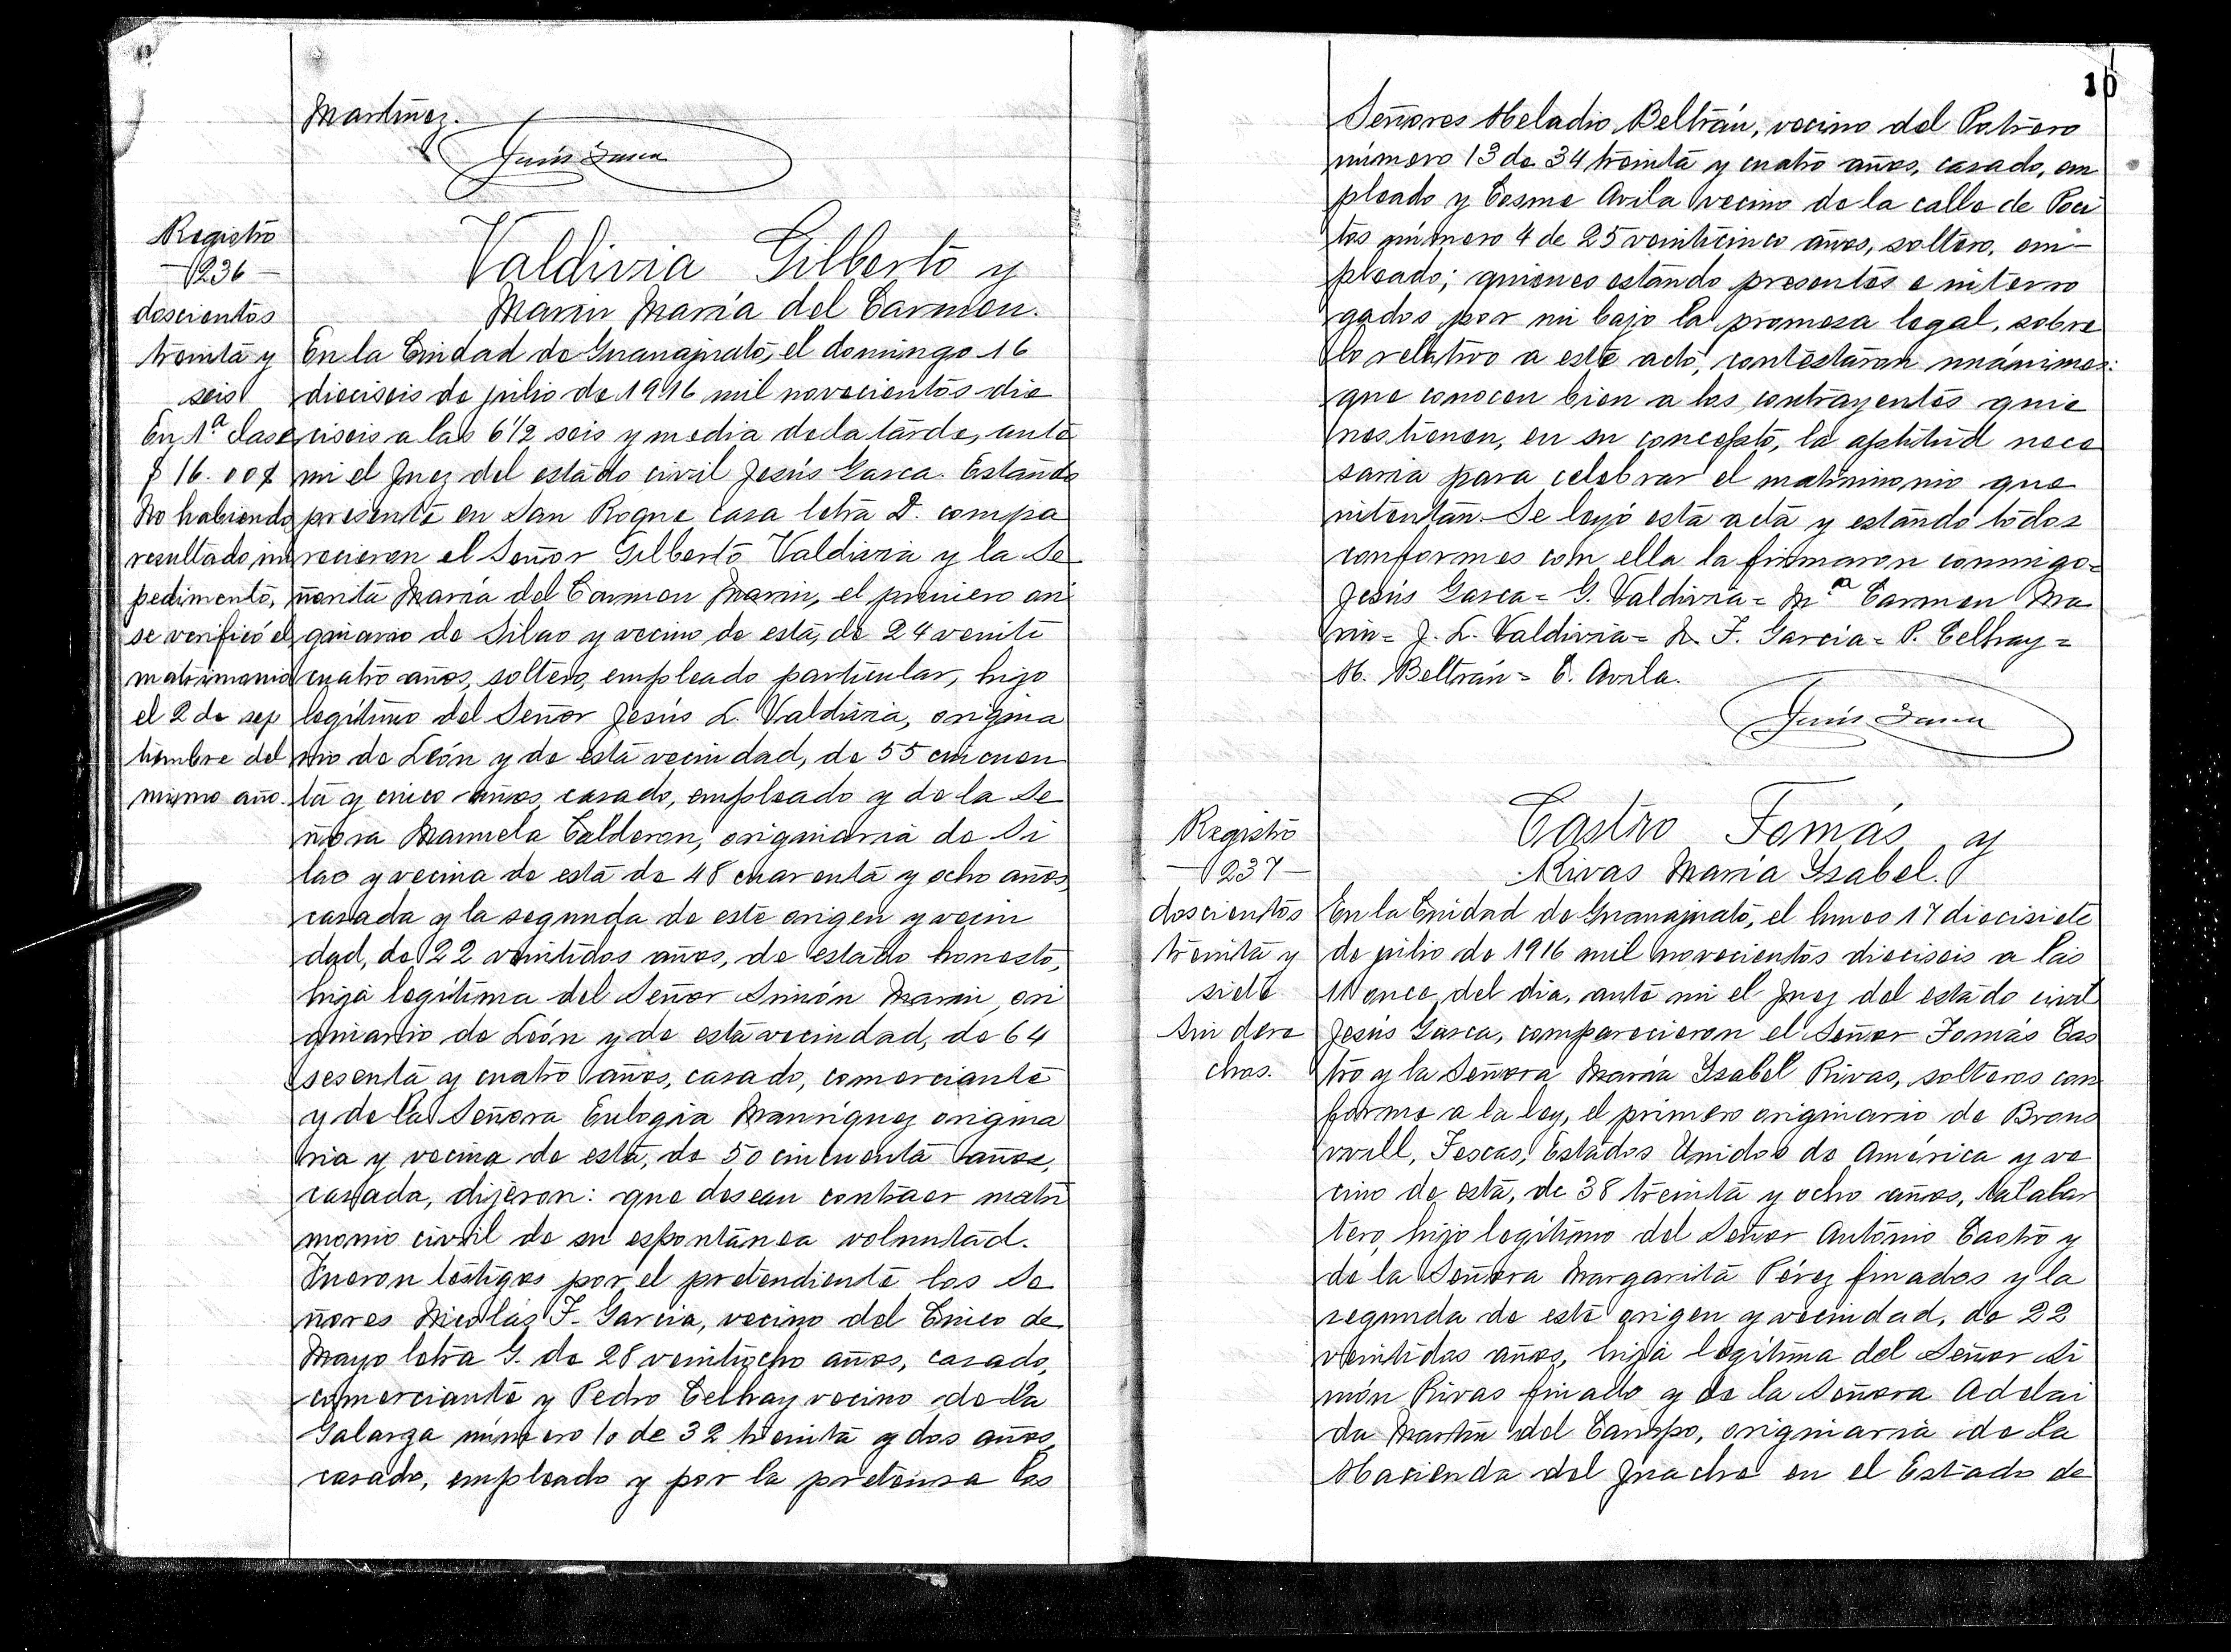 Martínez.
Jesús Gasca
Registro
—236—
doscientos
treinta y
seis
En 1ª clase
$ 16.00 ¢
No habiendo
resultado im
pedimento,
se verificó el
matrimonio
el 2 de sep
tiembre del
mismo año.
Valdivia Gilberto y
Marin María del Carmen.
En la Ciudad de Guanajuato, el domingo 16
dieciseis de julio de 1916 mil novecientos die
ciseis a las 6½ seis y media de la tarde, ante
mi el Juez del estado civil Jesús Gasca. Estando
presente en San Roque casa letra D. compa
recieron el Señor Gilberto Valdivia y la Se
ñorita María del Carmen Marin, el primero ori
ginario de Silao y vecino de esta, de 24 veinte
cuatro años, soltero, empleado particular, hijo
legítimo del Señor Jesús L. Valdivia, origina
rio de León y de esta vecindad, de 55 cincuen
ta y cinco años, casado, empleado y de la Se
ñora Manuela Calderon, originaria de Si
lao y vecina de esta de 48 cuarenta y ocho años,
casada y la segunda de este origen y vecin
dad, de 22 veintidos años, de estado honesto,
hija legítima del Señor Simón Marin, ori
ginario de León y de esta vecindad, de 64
sesenta y cuatro años, casado, comerciante
y de la Señora Eulogia Manríquez origina
ria y vecina de esta, de 50 cincuenta años,
casada, dijeron: que desean contraer matri
monio civil de su espontánea voluntad.
Fueron testigos por el pretendiente los Se
ñores Nicolás F. García, vecino del Cinco de
Mayo letra G. de 28 veintiocho años, casado,
comerciante y Pedro Celhay vecino de la
Galarza número 10 de 32 treinta y dos años,
casado, empleado y por la pretensa los
10
Señores Heladio Beltrán, vecino del Potrero
número 13 de 34 treinta y cuatro años, casado, em
pleado y Cosme Avila vecino de la calle de Poci
tos número 4 de 25 veinticinco años, soltero, em-
pleado; quienes estando presentes e interro
gados por mi bajo la promesa legal, sobre
lo relativo a este acto, contestaron unánimes:
que conocen bien a los contrayentes quie
nes tienen, en su concepto, la aptitud nece
saria para celebrar el matrimonio que
intentan. Se leyó esta acta y estando todos
conformes con ella la firmaron conmigo=
Jesús Gasca= G. Valdivia= Mª Carmen Ma
rin= J. L. Valdivia= N. F. García= P. Celhay=
H. Beltrán= C. Avila.
Jesús Gasca
Registro
—237—
doscientos
treinta y
siete
Sin dere
chos.
Castro Tomás y
Rivas María Ysabel.
En la Ciudad de Guanajuato, el lunes 17 diecisiete
de julio de 1916 mil novecientos dieciseis a las
11 once del dia, ante mi el Juez del estado civil
Jesús Gasca, comparecieron el Señor Tomás Cas
tro y la Señora María Ysabel Rivas, solteros con
forme a la ley, el primero originario de Brons
will, Texas, Estados Unidos de América y ve
cino de esta, de 38 treinta y ocho años, talabar
tero, hijo legítimo del Señor Antonio Castro y
de la Señora Margarita Pérez finados y la
segunda de este origen y vecindad, de 22
veintidos años, hija legítima del Señor Si
món Rivas finado y de la Señora Adelai
da Martín del Campo, originaria de la
Hacienda del en el Estado de